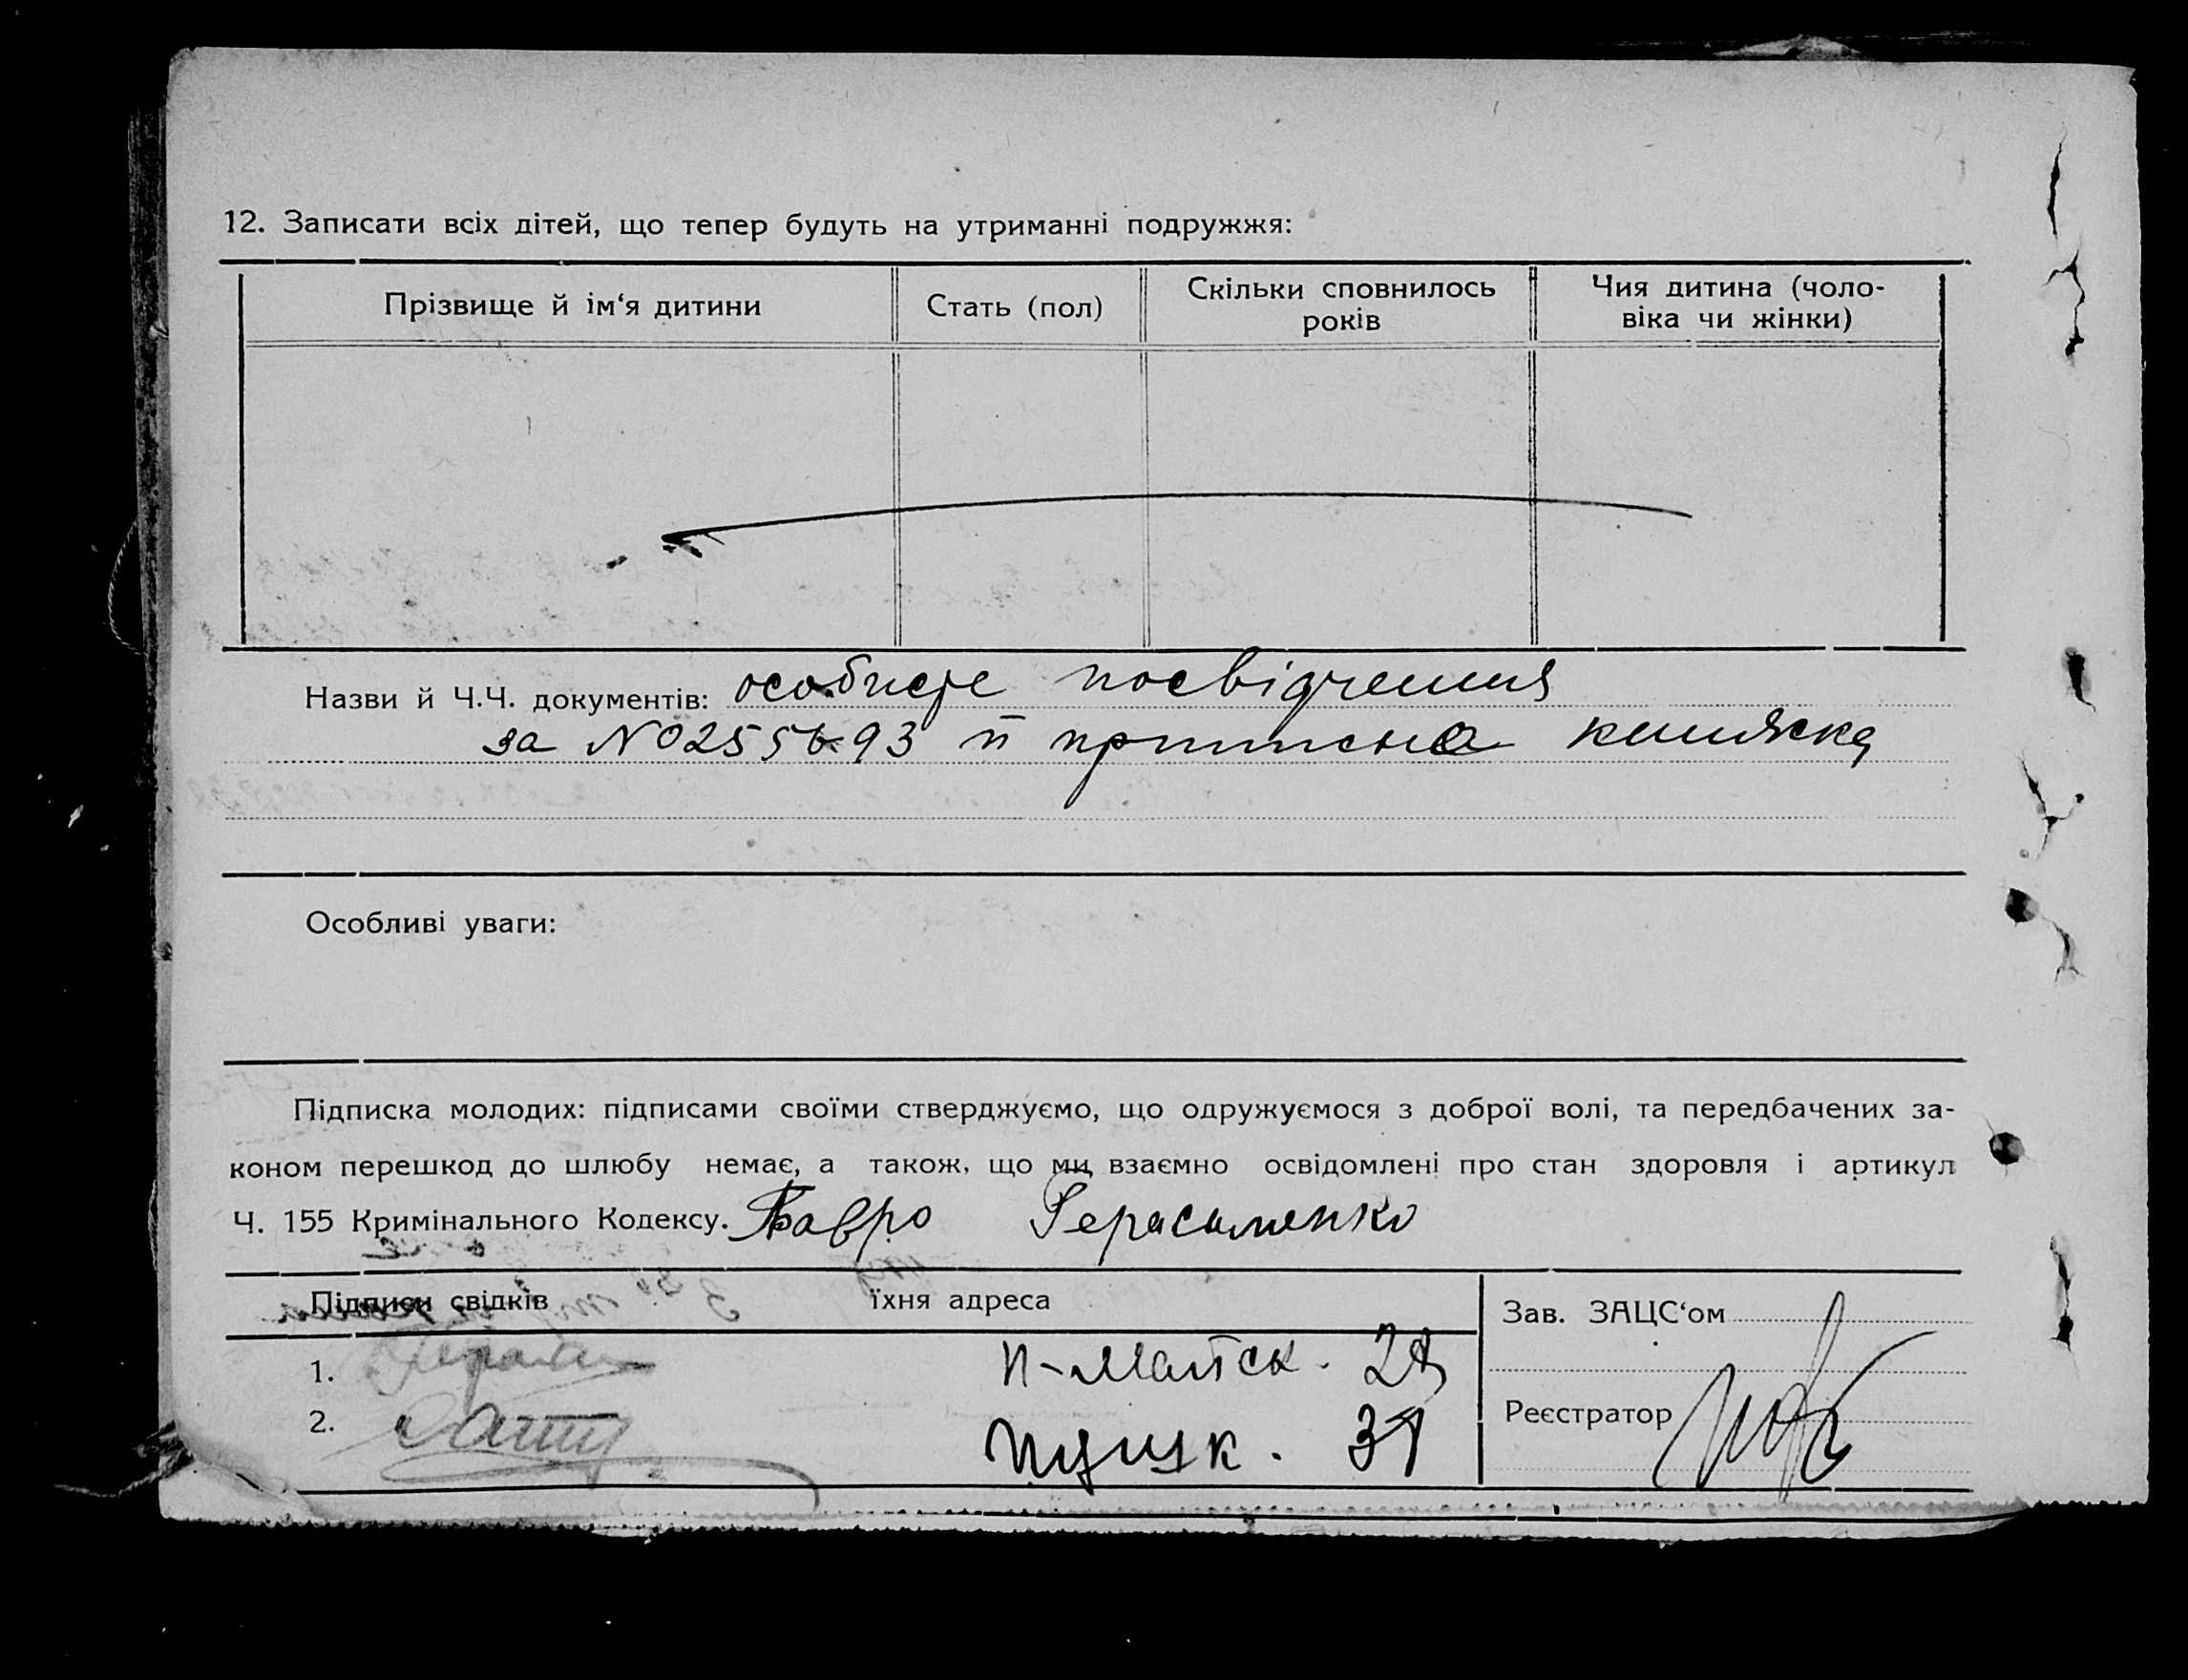 12. Записати всіх дітей, що тепер будуть на утриманні подружжя:
Прізвище й ім‘я дитини
Стать (пол)
Скільки сповнилось
років
Чия дитина (чоло-
віка чи жінки)
Назви й Ч.Ч. документів: особисте посвідчення
за №0255693 й приписна книжка
Особливі уваги:
Підписка молодих: підписами своїми стверджуємо, що одружуємося з доброї волі, та передбачених за-
коном перешкод до шлюбу немає, а також, що ми взаємно освідомлені про стан здоровля і артикул
Ч. 155 Кримінального Кодексу. Герасименко
Підписи свідків їхня адреса
Зав. ЗАЦС‘ом
1. П-Майск.
2. Пушк. 37
Реєстратор